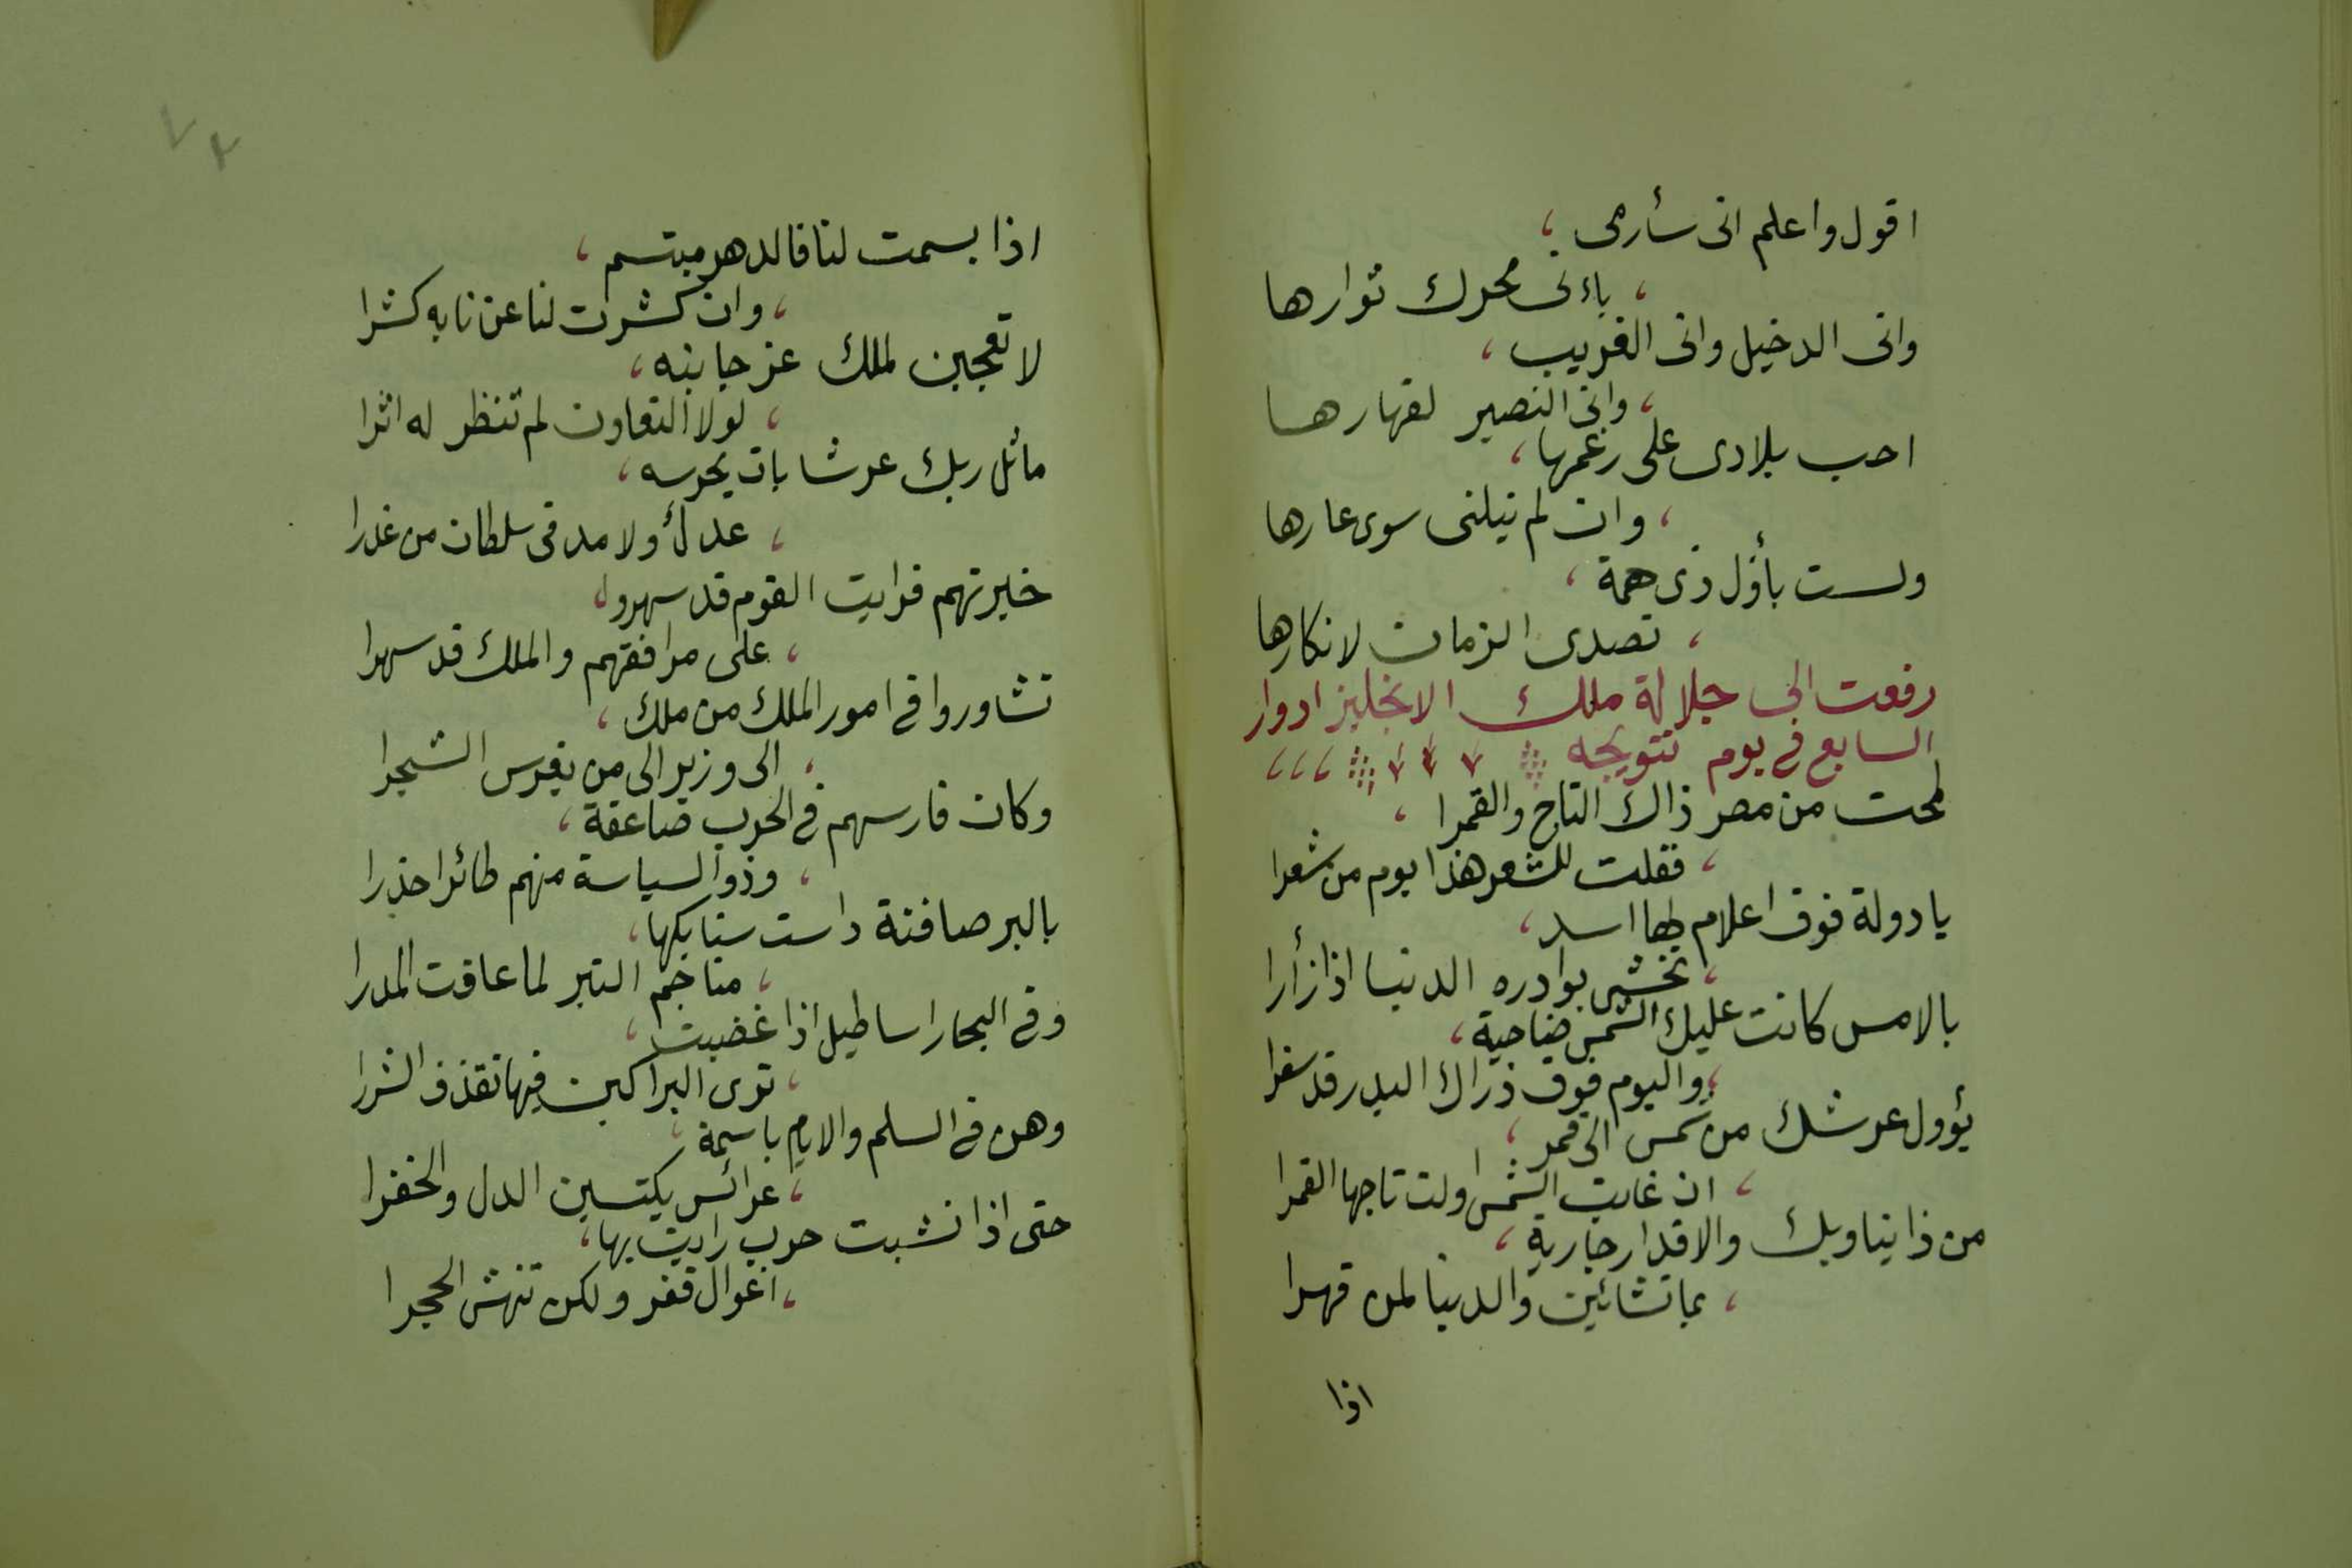 اقول واعلم انى سأرمى ،
، بأنى محرك ثوارها
وانى الدخيل وانى الغريب ،
، وانى النصير لقهارها
احب بلادى على رغمها ،
، وان لم ينلنى سوى عارها
ولست بأول ذى همة ،
، تصدى الزمان لانكارها
رفعت الى جلالة ملك الانجليز ادوار
السابع فى يوم تتويجه
لمحت من مصر ذاك التاج والقمرا ،
، فقلت للشعر هذا يوم من شعرا
يا دولة فوق اعلام لها اسد ،
، تخشى بوادره الدنيا اذا زأرا
بالامس كانت عليك الشمس ضاحية ،
، واليوم فوق ذراك البدر قد سفرا
يؤول عرشك من شمس الى قمر ،
، ان غابت الشمس اولت تاجها القمرا
من ذا يناويك والاقدار جارية ،
، بما تشائين والدنيا لمن قهرا
اذا
٧٢
اذا بسمت لنا فالدهر مبتسم ،
، وان كشرت لنا عن نابه كشرا
لا تعجبن لملك عز جانبه ،
، لولا التعاون لم تنظر له اثرا
ما ثل ربك عرشا بات يحرسه ،
، عدل ولا مد فى سلطان من غدرا
خبرتهم فرايت القوم قد سهروا ،
، على مرافقهم والملك قد سهرا
تشاوروا فى امور الملك من ملك ،
، الى وزير الى من يغرس الشجرا
وكان فارسهم فى الحرب صاعقة ،
، وذو السياسة منهم طائرا حذرا
بالبر صافنة داست سنابكها ،
، مناجم التبر لما عافت المدرا
وفى البحار اساطيل اذا غضبت ،
، ترى البراكين فيها تقذف الشررا
وهن فى السلم والايام باسمة ،
، عرائس يكتسين الدل والخفرا
حتى اذا نشبت حرب رايت بها ،
، اغوال قفر ولكن تنهش الحجرا